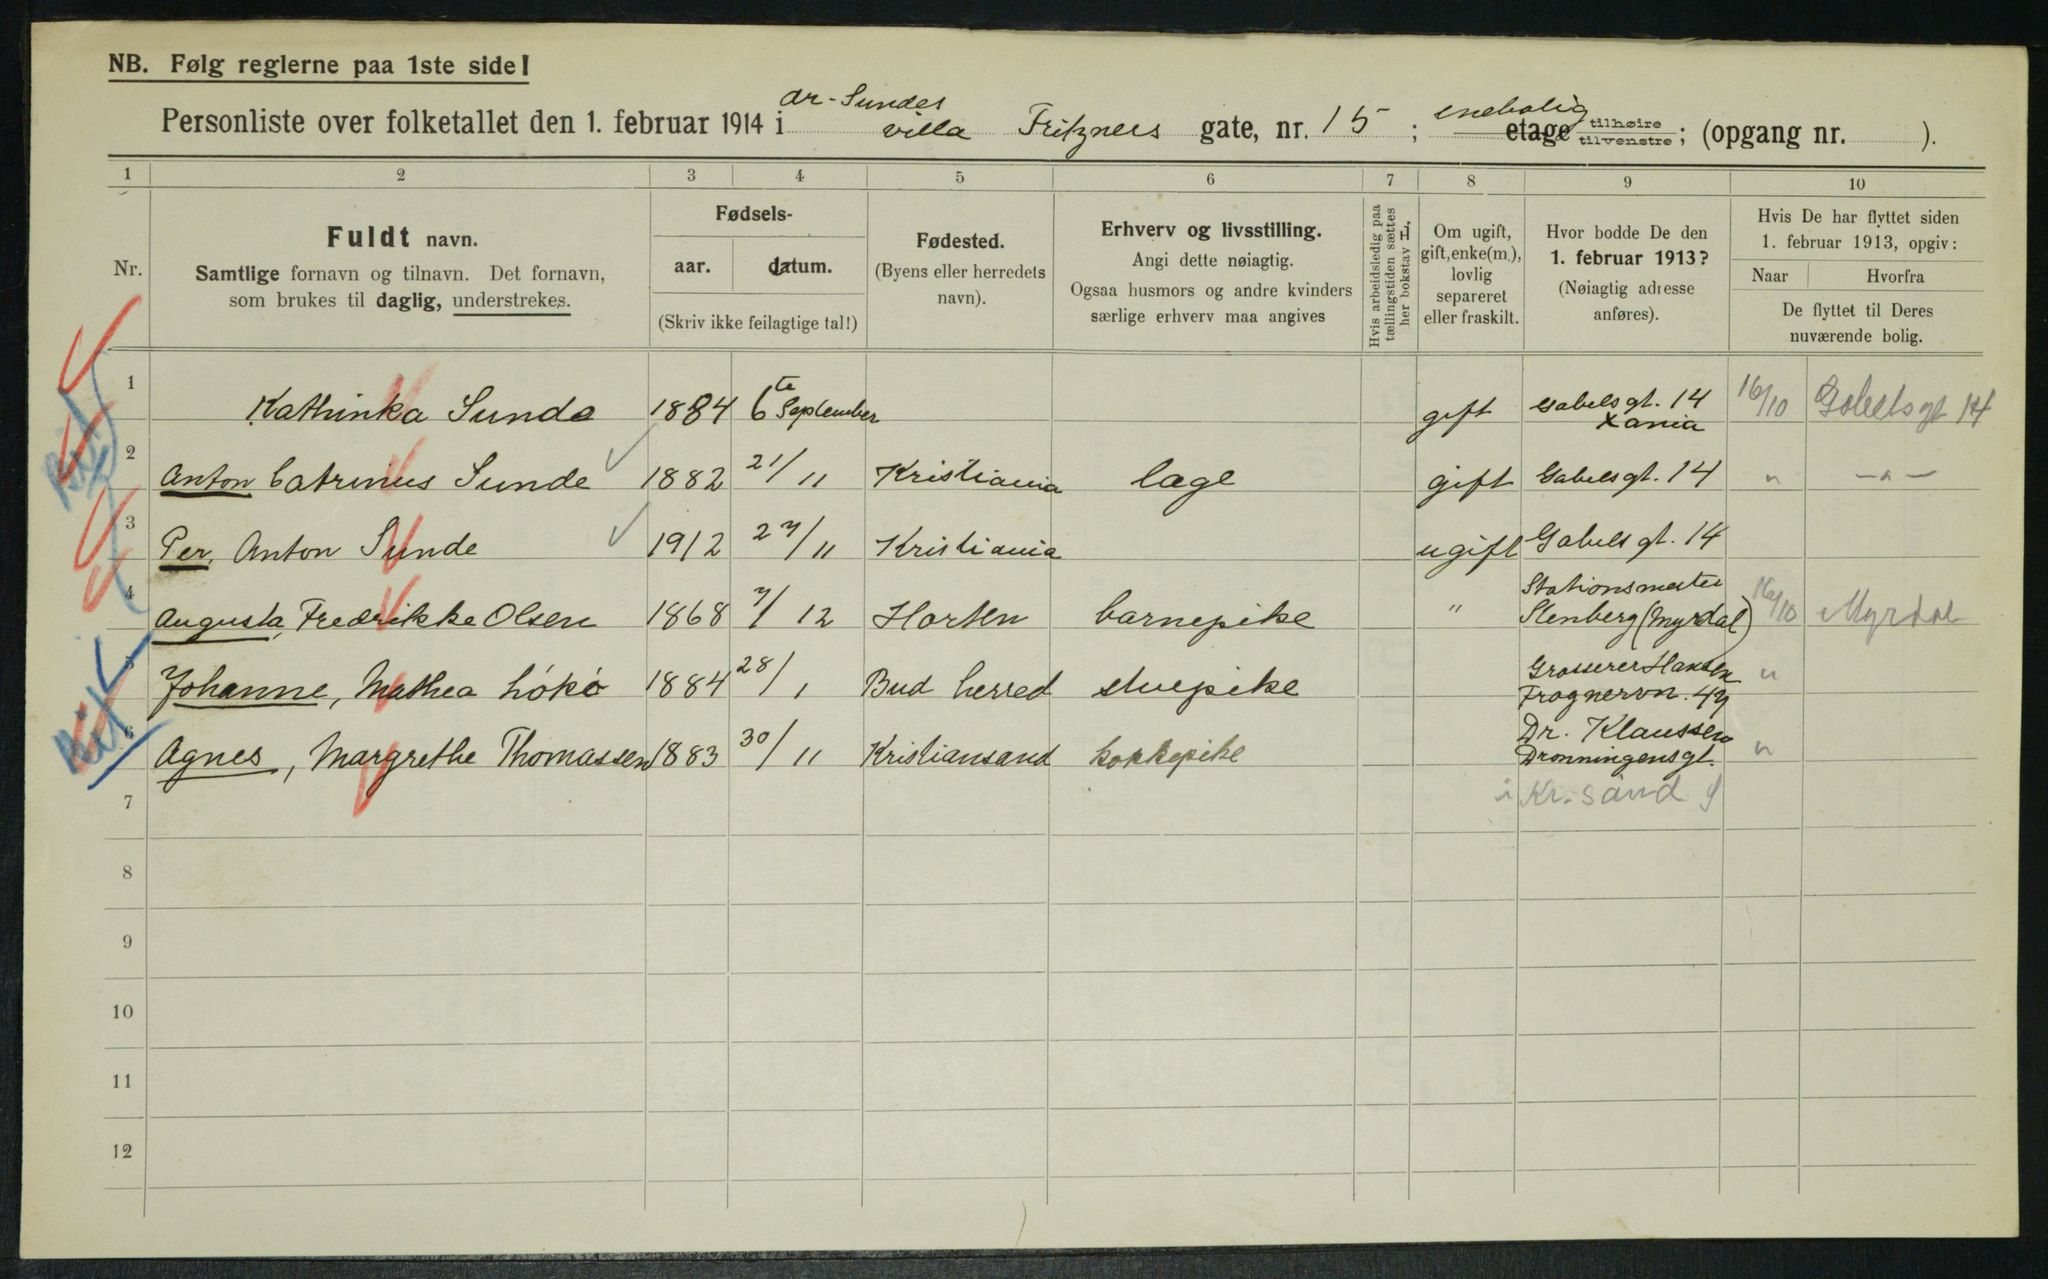 NB. Følg reglerne paa 1ste side!
dr. Sundes
Personliste over folketallet den 1. februar 1914 i villa Fritzners gate, nr. 15 ; enebolig etage tilhøire tilvenstre ; (opgang nr. ).
1 2 3 4 5 6 7 8 9 10
Nr.
Fuldt navn.
Samtlige fornavn og tilnavn. Det fornavn,
som brukes til daglig, understrekes.
Fødsels-
aar. datum.
(Skriv ikke feilagtige tal!)
Fødested.
(Byens eller herredets
navn).
Erhverv og livsstilling.
Angi dette nøiagtig.
Ogsaa husmors og andre kvinders
særlige erhverv maa angives
Hvis arbeidsledig paa
tællingstiden sættes
her bokstav L.
Om ugift,
gift, enke(m.),
lovlig
separeret
eller fraskilt.
Hvor bodde De den
1. februar 1913?
(Nøiagtig adresse
anføres).
Hvis De har flyttet siden
1. februar 1913, opgiv:
Naar Hvorfra
De flyttet til Deres
nuværende bolig.
1 Kathinka Sunde 1884 6te September gift Gabelsgt. 14 Xania 16/10 Gabelsgt 14
2 Anton Catrinus Sunde 1882 21/11 Kristiania læge gift Gabelsgt. 14 " —"—
3 Per Anton Sunde 1912 27/11 Kristiania ugift Gabelsgt. 14
4 Augusta, Fredrikke Olsen 1868 7/12 Horten barnepike " Stationsmester Stenberg (Myrdal) 16/10 Myrdal
5 Johanne, Mathea Lökö 1884 28/1 Bud herred stuepike Grosserer Hansen Frognervn. 47 "
6 Agnes, Margrethe Thomassen 1883 30/11 Kristiansand kokkepike Dr. Klaussen Dronningensgt. "
7 i Kr.sand S
8
9
10
11
12